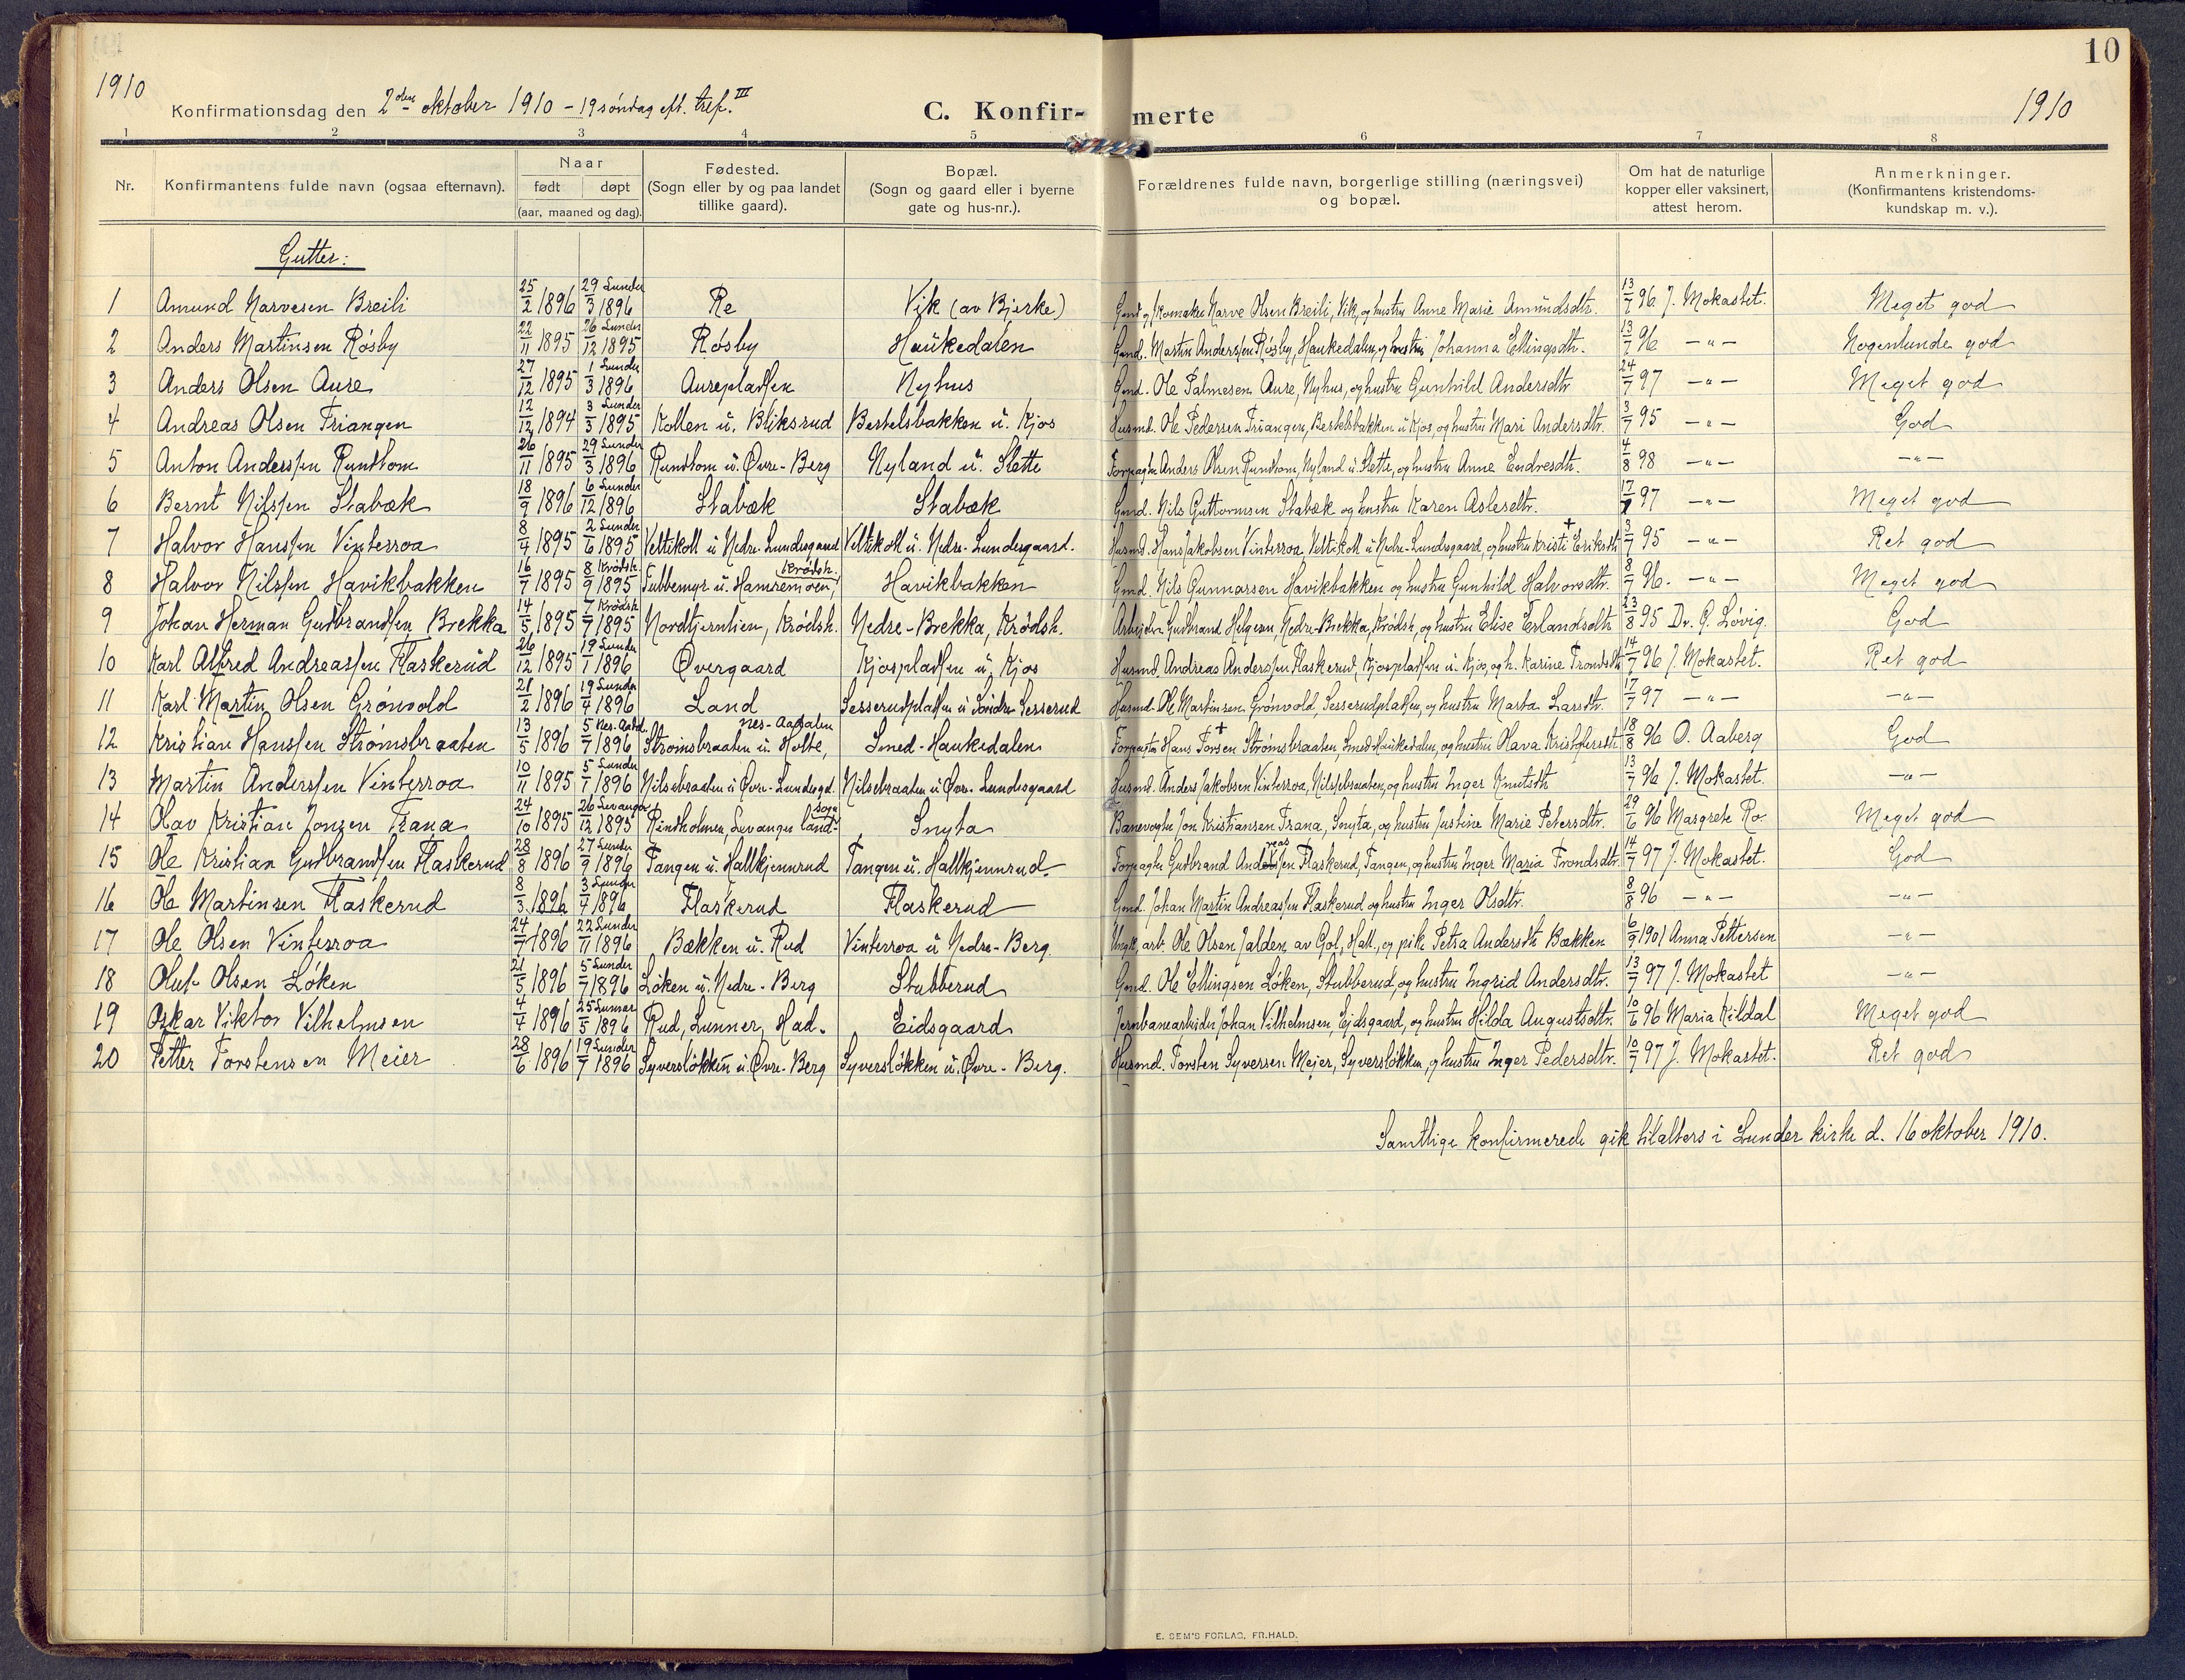 10
1910
1910
Konfirmationsdag den 2den oktober 1910 – 19 søndag eft. tref. III
C. Konfir- merte
1 2 3 4 5 6 7 8
Nr. Konfirmantens fulde navn (ogsaa efternavn). Naar født døpt (aar, maaned og dag). Fødested. (Sogn eller by og paa landet tillike gaard). Bopæl. (Sogn og gaard eller i byerne gate og hus-nr.). Forældrenes fulde navn, borgerlige stilling (næringsvei) og bopæl. Om hat de naturlige kopper eller vaksinert, attest herom. Anmerkninger. (Konfirmantens kristendoms-kundskap m. v.).
Gutter:
1 Amund Narvesen Breili 25/2 1896 29/3 Lunder 1896 Re Vik (av Bjerke) Gmd. og skomaker Narve Olsen Breili, Vik, og hustru Anne Marie Amundsdtr. 13/7 96 J. Mokastet. Meget god
2 Anders Martinsen Røsby 22/11 1895 26/12 Lunder 1895 Røsby Haukedalen Gmd. Martin Anderssen Røsby, Haukedalen, og hustru Johanna Ellingsdtr. 13/7 96 –"– Nogenlunde god
3 Anders Olsen Aure 27/12 1895 1/3 Lunder 1896 Aureplassen Nyhus Gmd. Ole Palmesen Aure, Nyhus, og hustru Gunhild Andersdtr 24/7 97 –"– Meget god
4 Andreas Olsen Triangen 12/12 1894 3/3 Lunder 1895 Kollen u. Bliksrud Bertelsbakken u. Kjos Husmd. Ole Pedersen Triangen, Bertelsbakken u. Kjos, og hustru Mari Andersdtr. 3/7 95 –"– God
5 Anton Anderssen Rundtom 26/11 1895 29/3 Lunder 1896 Rundtom u. Øvre-Berg Nyland u. Slette Forpagter Anders Olsen Rundtom, Nyland u. Slette, og hustru Anne Endresdtr. 4/8 98 –"– –"–
6 Bernt Nilssen Stabæk 18/9 1896 6/12 Lunder 1896 Stabæk Stabæk Gmd. Nils Guttormsen Stabæk og hustru Karen Aslesdtr. 17/7 97 –"– Meget god
7 Halvor Hanssen Vinterroa 8/4 1895 2/6 Lunder 1895 Veltikoll u Nedre-Lundesgaard Veltikoll u. Nedre-Lundesgaard. Husmd. Hans Jakobsen Vinterroa, Veltikoll u Nedre-Lundesgaard, og hustru Kristi † Eriksdtr 3/7 95 –"– Ret god
8 Halvor Nilssen Havikbakken 16/7 1895 8/9 Krødsh. 1895 Tubbemyr u. Hamremoen, Krødsh. Havikbakken Gmd. Nils Gunnarsen Havikbakken og hustru Gunhild Halvorsdtr. 8/7 96. –"– Meget god
9 Johan Herman Gudbrandsen Brekka 14/5 1895 7/7 Krødsh 1895 Nordtjernlien, Krødsh. Nedre-Brekka, Krødsh. Arbeider Gudbrand Helgesen, Nedre-Brekka, Krødsh, og hustru Elise Erlandsdtr 23/8 95 Dr. G. Løvig. God
10 Karl Alfred Andreassen Flaskerud 26/12 1895 19/1 Lunder 1896 Øvergaard Kjosplassen u. Kjos Husmd. Andreas Anderssen Flaskerud, Kjosplassen u. Kjos, og h. Karine Trondsdtr 14/7 96 J. Mokastet. Ret god
11 Karl Martin Olsen Grønvold 21/2 1896 19/4 Lunder 1896 Land Sesserudplassen u Søndre Sesserud Husmd. Ole Martinsen Grønvold, Sesserudplassen, og hustru Marta Larsdtr. 17/7 97 –"– –"–
12 Kristian Hanssen Strømsbraaten 13/5 1896 5/7 Nes-Aadal 1896 Strømsbraaten u. Holte, Nes-Aadalen Smed-Haukedalen Forpagter Hans † Torsen Strømsbraaten, Smed-Haukedalen, og hustru Olava Kristofersdtr 18/8 96 O. Aaberg God
13 Martin Anderssen Vinterroa 10/11 1895 5/1 Lunder 1896 Nilsebraaten u Øvre-Lundesgd. Nilsebraaten u Øvre-Lundesgaard Husmd. Anders Jakobsen Vinterroa, Nilsebraaten, og hustru Inger Knutsdtr 13/7 96 J. Mokastet. –"–
14 Olav Kristian Jonsen Trana 24/10 1895 26/12 Levanger 1895 Rindholmen, Levanger landsogn Snyta Banevogter Jon Kristiansen Trana, Snyta, og hustru Justine Marie Petersdtr. 29/6 96 Margrete Ro. Meget god
15 Ole Kristian Gudbrandsen Flaskerud 28/8 1896 27/9 Lunder 1896 Tangen u. Hallkjennrud Tangen u. Hallkjennrud Forpagter Gudbrand Andreassen Flaskerud, Tangen, og hustru Inger Maria Trondsdtr. 14/7 97 J. Mokastet. God
16 Ole Martinsen Flaskerud 8/3 1896 3/4 Lunder 1896 Flaskerud Flaskerud Gmd. Johan Martin Andreassen Flaskerud og hustru Inger Olsdtr. 8/8 96 –"– –"–
17 Ole Olsen Vinterroa 24/7 1896 22/11 Lunder 1896 Bækken u. Rud Vinterroa u Nedre-Berg. Ungk, arb. Ole Olsen Jalden av Gol, Hall., og pike Petra Andersdtr Bækken 6/9 1901 Anna Pettersen –"–
18 Oluf Olsen Løken 21/5 1896 5/7 Lunder 1896 Løken u. Nedre-Berg Stubberud Gmd. Ole Ellingsen Løken, Stubberud, og hustru Ingrid Andersdtr. 13/7 97 J. Mokastet –"–
19 Oskar Viktor Vilhelmsen 4/4 1896 25/5 Lunner 1896 Rud, Lunner, Had. Eidsgaard Jernbanearbeider Johan Vilhelmsen, Eidsgaard, og hustru Hilda Augustsdtr. 10/6 96 Maria Kildal Meget god
20 Petter Torstensen Meier 28/6 1896 19/7 Lunder 1896 Syversløkken u. Øvre-Berg Syversløkken u. Øvre-Berg. Husmd. Torsten Syversen Meier, Syversløkken, og hustru Inger Pedersdtr. 10/7 97 J. Mokastet. Ret god
Samtlige konfirmerede gik tilalters i Lunder kirke d. 16 oktober 1910.
E. SEM'S FORLAG, FR.HALD.